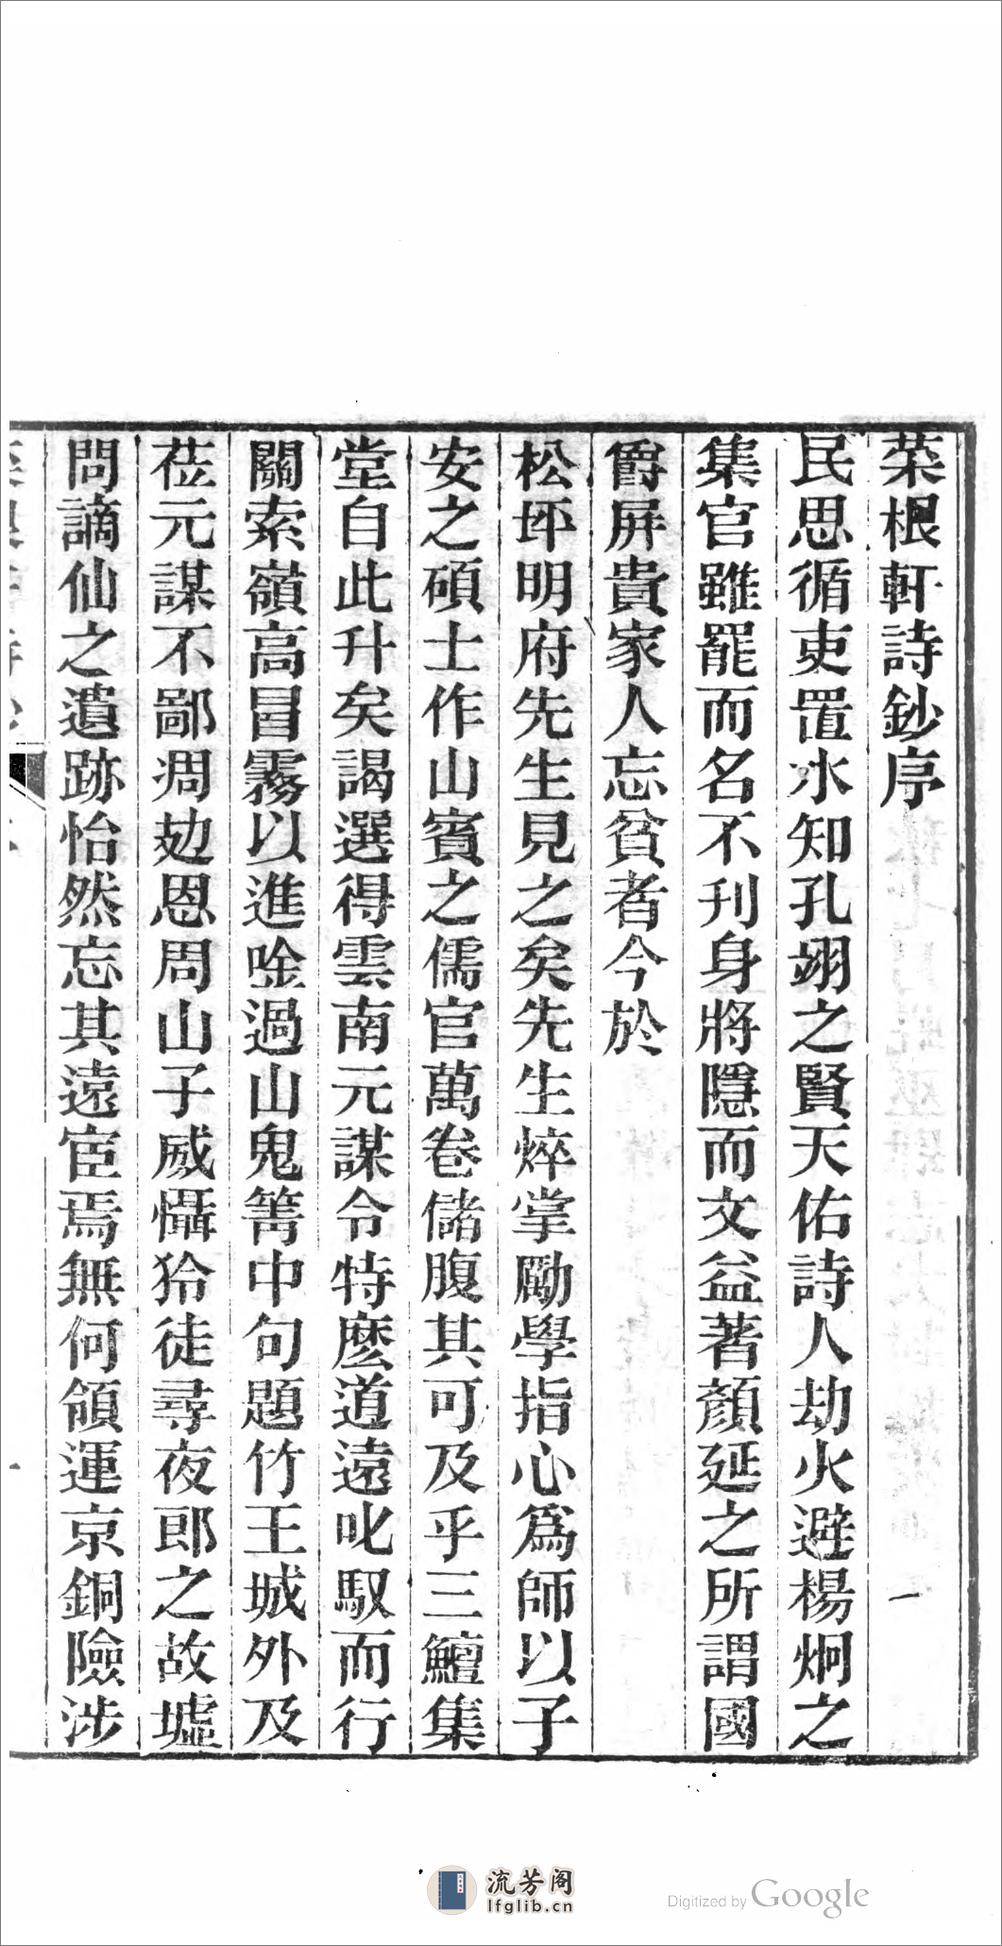 菜根軒詩鈔序
民思循吏置水知孔翊之賢天佑詩人劫火避楊炯之
集官雖罷而名不刊身將隱而文益著顏延之所謂國
爵屏貴家人忘貧者今於
松坪明府先生見之矣先生焠掌勵學指心爲師以子
安之碩士作山賓之儒官萬卷儲腹其可及乎三鱣集
堂自此升矣謁選得雲南元謀令特麽道遠叱馭而行
關索嶺高冒霧以進唫過山鬼箐中句題竹王城外及
莅元謀不鄙凋攰恩周山子威懾狑徒尋夜郎之故墟
問謫仙之遺跡怡然忘其遠宦焉無何領運京銅險涉
一
流芳阁
lfglib.cn
Digitized by Google